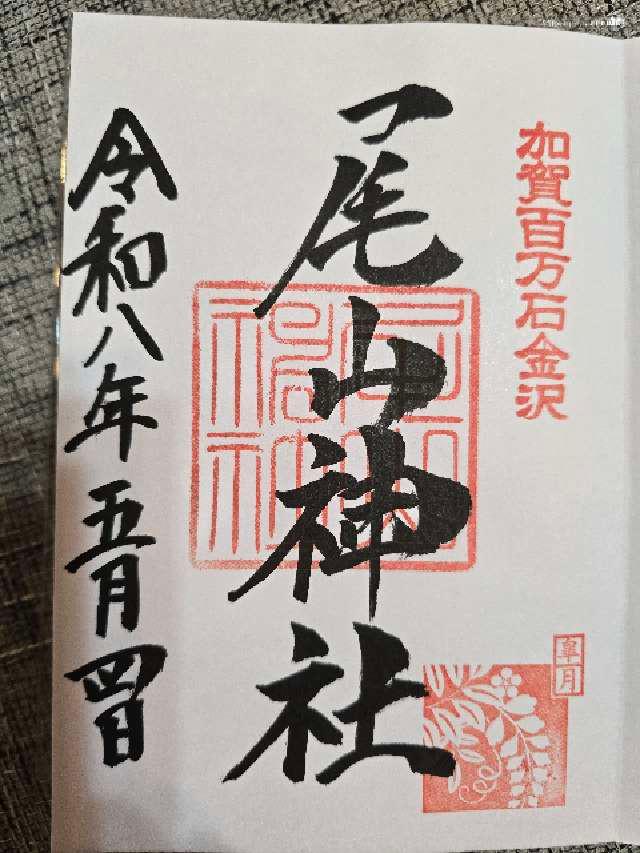 加賀百万石金沢
皐月
尾山神社
令和八年五月四日